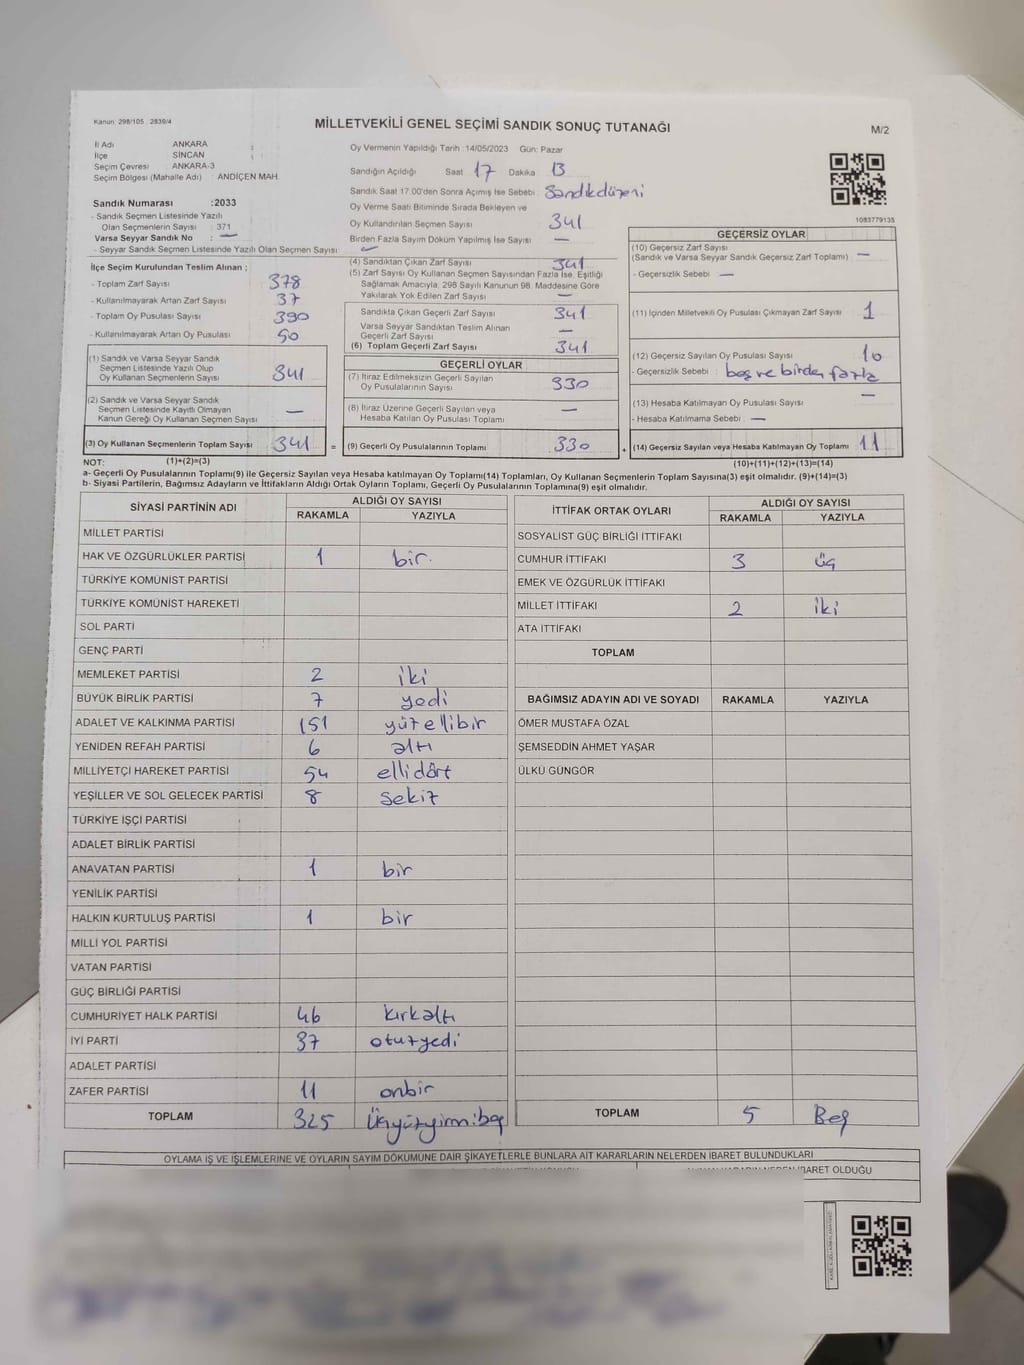 Kanun: 298/105 , 2839/4
MİLLETVEKİLİ GENEL SEÇİMİ SANDIK SONUÇ TUTANAĞI
M/2
İl Adı : ANKARA
İlçe : SİNCAN
Seçim Çevresi ANKARA-3
Seçim Bölgesi (Mahalle Adı) : ANDİÇEN MAH.
Sandık Numarası :2033
- Sandık Seçmen Listesinde Yazılı
Olan Seçmenlerin Sayısı : 371
Varsa Seyyar Sandık No : —
- Seyyar Sandık Seçmen Listesinde Yazılı Olan Seçmen Sayısı : —
Oy Vermenin Yapıldığı Tarih :14/05/2023 Gün: Pazar
Sandığın Açıldığı Saat 17 Dakika 13
Sandık Saat 17.00'den Sonra Açımış İse Sebebi : Sandıkdüzeni
Oy Verme Saati Bitiminde Sırada Bekleyen ve
Oy Kullandırılan Seçmen Sayısı 341
Birden Fazla Sayım Döküm Yapılmış İse Sayısı —
1083779135
İlçe Seçim Kurulundan Teslim Alınan ;
- Toplam Zarf Sayısı 378
- Kullanılmayarak Artan Zarf Sayısı 37
- Toplam Oy Pusulası Sayısı 390
- Kullanılmayarak Artan Oy Pusulası 50
(1) Sandık ve Varsa Seyyar Sandık
Seçmen Listesinde Yazılı Olup
Oy Kullanan Seçmenlerin Sayısı 341
(2) Sandık ve Varsa Seyyar Sandık
Seçmen Listesinde Kayıtlı Olmayan
Kanun Gereği Oy Kullanan Seçmen Sayısı —
(3) Oy Kullanan Seçmenlerin Toplam Sayısı 341 =
(4) Sandıktan Çıkan Zarf Sayısı 341
(5) Zarf Sayısı Oy Kullanan Seçmen Sayısından Fazla İse, Eşitliği
Sağlamak Amacıyla, 298 Sayılı Kanunun 98. Maddesine Göre
Yakılarak Yok Edilen Zarf Sayısı —
Sandıkta Çıkan Geçerli Zarf Sayısı 341
Varsa Seyyar Sandıktan Teslim Alınan
Geçerli Zarf Sayısı —
(6) Toplam Geçerli Zarf Sayısı 341
GEÇERLİ OYLAR
(7) İtiraz Edilmeksizin Geçerli Sayılan
Oy Pusulalarının Sayısı 330
(8) İtiraz Üzerine Geçerli Sayılan veya
Hesaba Katılan Oy Pusulası Toplamı —
(9) Geçerli Oy Pusulalarının Toplamı 330 +
GEÇERSİZ OYLAR
(10) Geçersiz Zarf Sayısı
(Sandık ve Varsa Seyyar Sandık Geçersiz Zarf Toplamı) —
- Geçersizlik Sebebi : —
(11) İçinden Milletvekili Oy Pusulası Çıkmayan Zarf Sayısı 1
(12) Geçersiz Sayılan Oy Pusulası Sayısı 10
- Geçersizlik Sebebi : boş ve birden fazla
(13) Hesaba Katılmayan Oy Pusulası Sayısı —
- Hesaba Katılmama Sebebi : —
(14) Geçersiz Sayılan veya Hesaba Katılmayan Oy Toplamı 11
NOT: (1)+(2)=(3) (10)+(11)+(12)+(13)=(14)
a- Geçerli Oy Pusulalarının Toplamı(9) ile Geçersiz Sayılan veya Hesaba katılmayan Oy Toplamı(14) Toplamları, Oy Kullanan Seçmenlerin Toplam Sayısına(3) eşit olmalıdır. (9)+(14)=(3)
b- Siyasi Partilerin, Bağımsız Adayların ve İttifakların Aldığı Ortak Oyların Toplamı, Geçerli Oy Pusulalarının Toplamına(9) eşit olmalıdır.
SİYASİ PARTİNİN ADI ALDIĞI OY SAYISI
RAKAMLA YAZIYLA
MİLLET PARTİSİ
HAK VE ÖZGÜRLÜKLER PARTİSİ 1 bir
TÜRKİYE KOMÜNİST PARTİSİ
TÜRKİYE KOMÜNİST HAREKETİ
SOL PARTİ
GENÇ PARTİ
MEMLEKET PARTİSİ 2 iki
BÜYÜK BİRLİK PARTİSİ 7 yedi
ADALET VE KALKINMA PARTİSİ 151 yüzellibir
YENİDEN REFAH PARTİSİ 6 altı
MİLLİYETÇİ HAREKET PARTİSİ 54 ellidört
YEŞİLLER VE SOL GELECEK PARTİSİ 8 sekiz
TÜRKİYE İŞÇİ PARTİSİ
ADALET BİRLİK PARTİSİ
ANAVATAN PARTİSİ 1 bir
YENİLİK PARTİSİ
HALKIN KURTULUŞ PARTİSİ 1 bir
MİLLİ YOL PARTİSİ
VATAN PARTİSİ
GÜÇ BİRLİĞİ PARTİSİ
CUMHURİYET HALK PARTİSİ 46 kırkaltı
İYİ PARTİ 37 otuzyedi
ADALET PARTİSİ
ZAFER PARTİSİ 11 onbir
TOPLAM 325 Üçyüzyirmibeş
İTTİFAK ORTAK OYLARI ALDIĞI OY SAYISI
RAKAMLA YAZIYLA
SOSYALİST GÜÇ BİRLİĞİ İTTİFAKI
CUMHUR İTTİFAKI 3 üç
EMEK VE ÖZGÜRLÜK İTTİFAKI
MİLLET İTTİFAKI 2 iki
ATA İTTİFAKI
TOPLAM
BAĞIMSIZ ADAYIN ADI VE SOYADI RAKAMLA YAZIYLA
ÖMER MUSTAFA ÖZAL
ŞEMSEDDİN AHMET YAŞAR
ÜLKÜ GÜNGÖR
TOPLAM 5 Beş
OYLAMA İŞ VE İŞLEMLERİNE VE OYLARIN SAYIM DÖKÜMÜNE DAİR ŞİKAYETLERLE BUNLARA AİT KARARLARIN NELERDEN İBARET BULUNDUKLARI
İBARET OLDUĞU